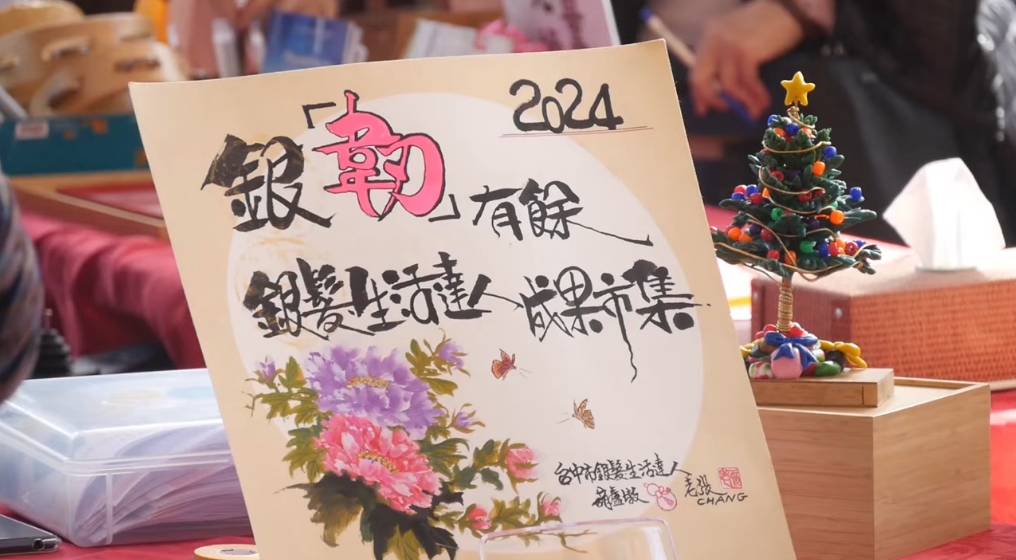 2024
銀「韌」有餘
銀髮生活達人成果市集
台中市銀髮生活達人
老張
CHANG